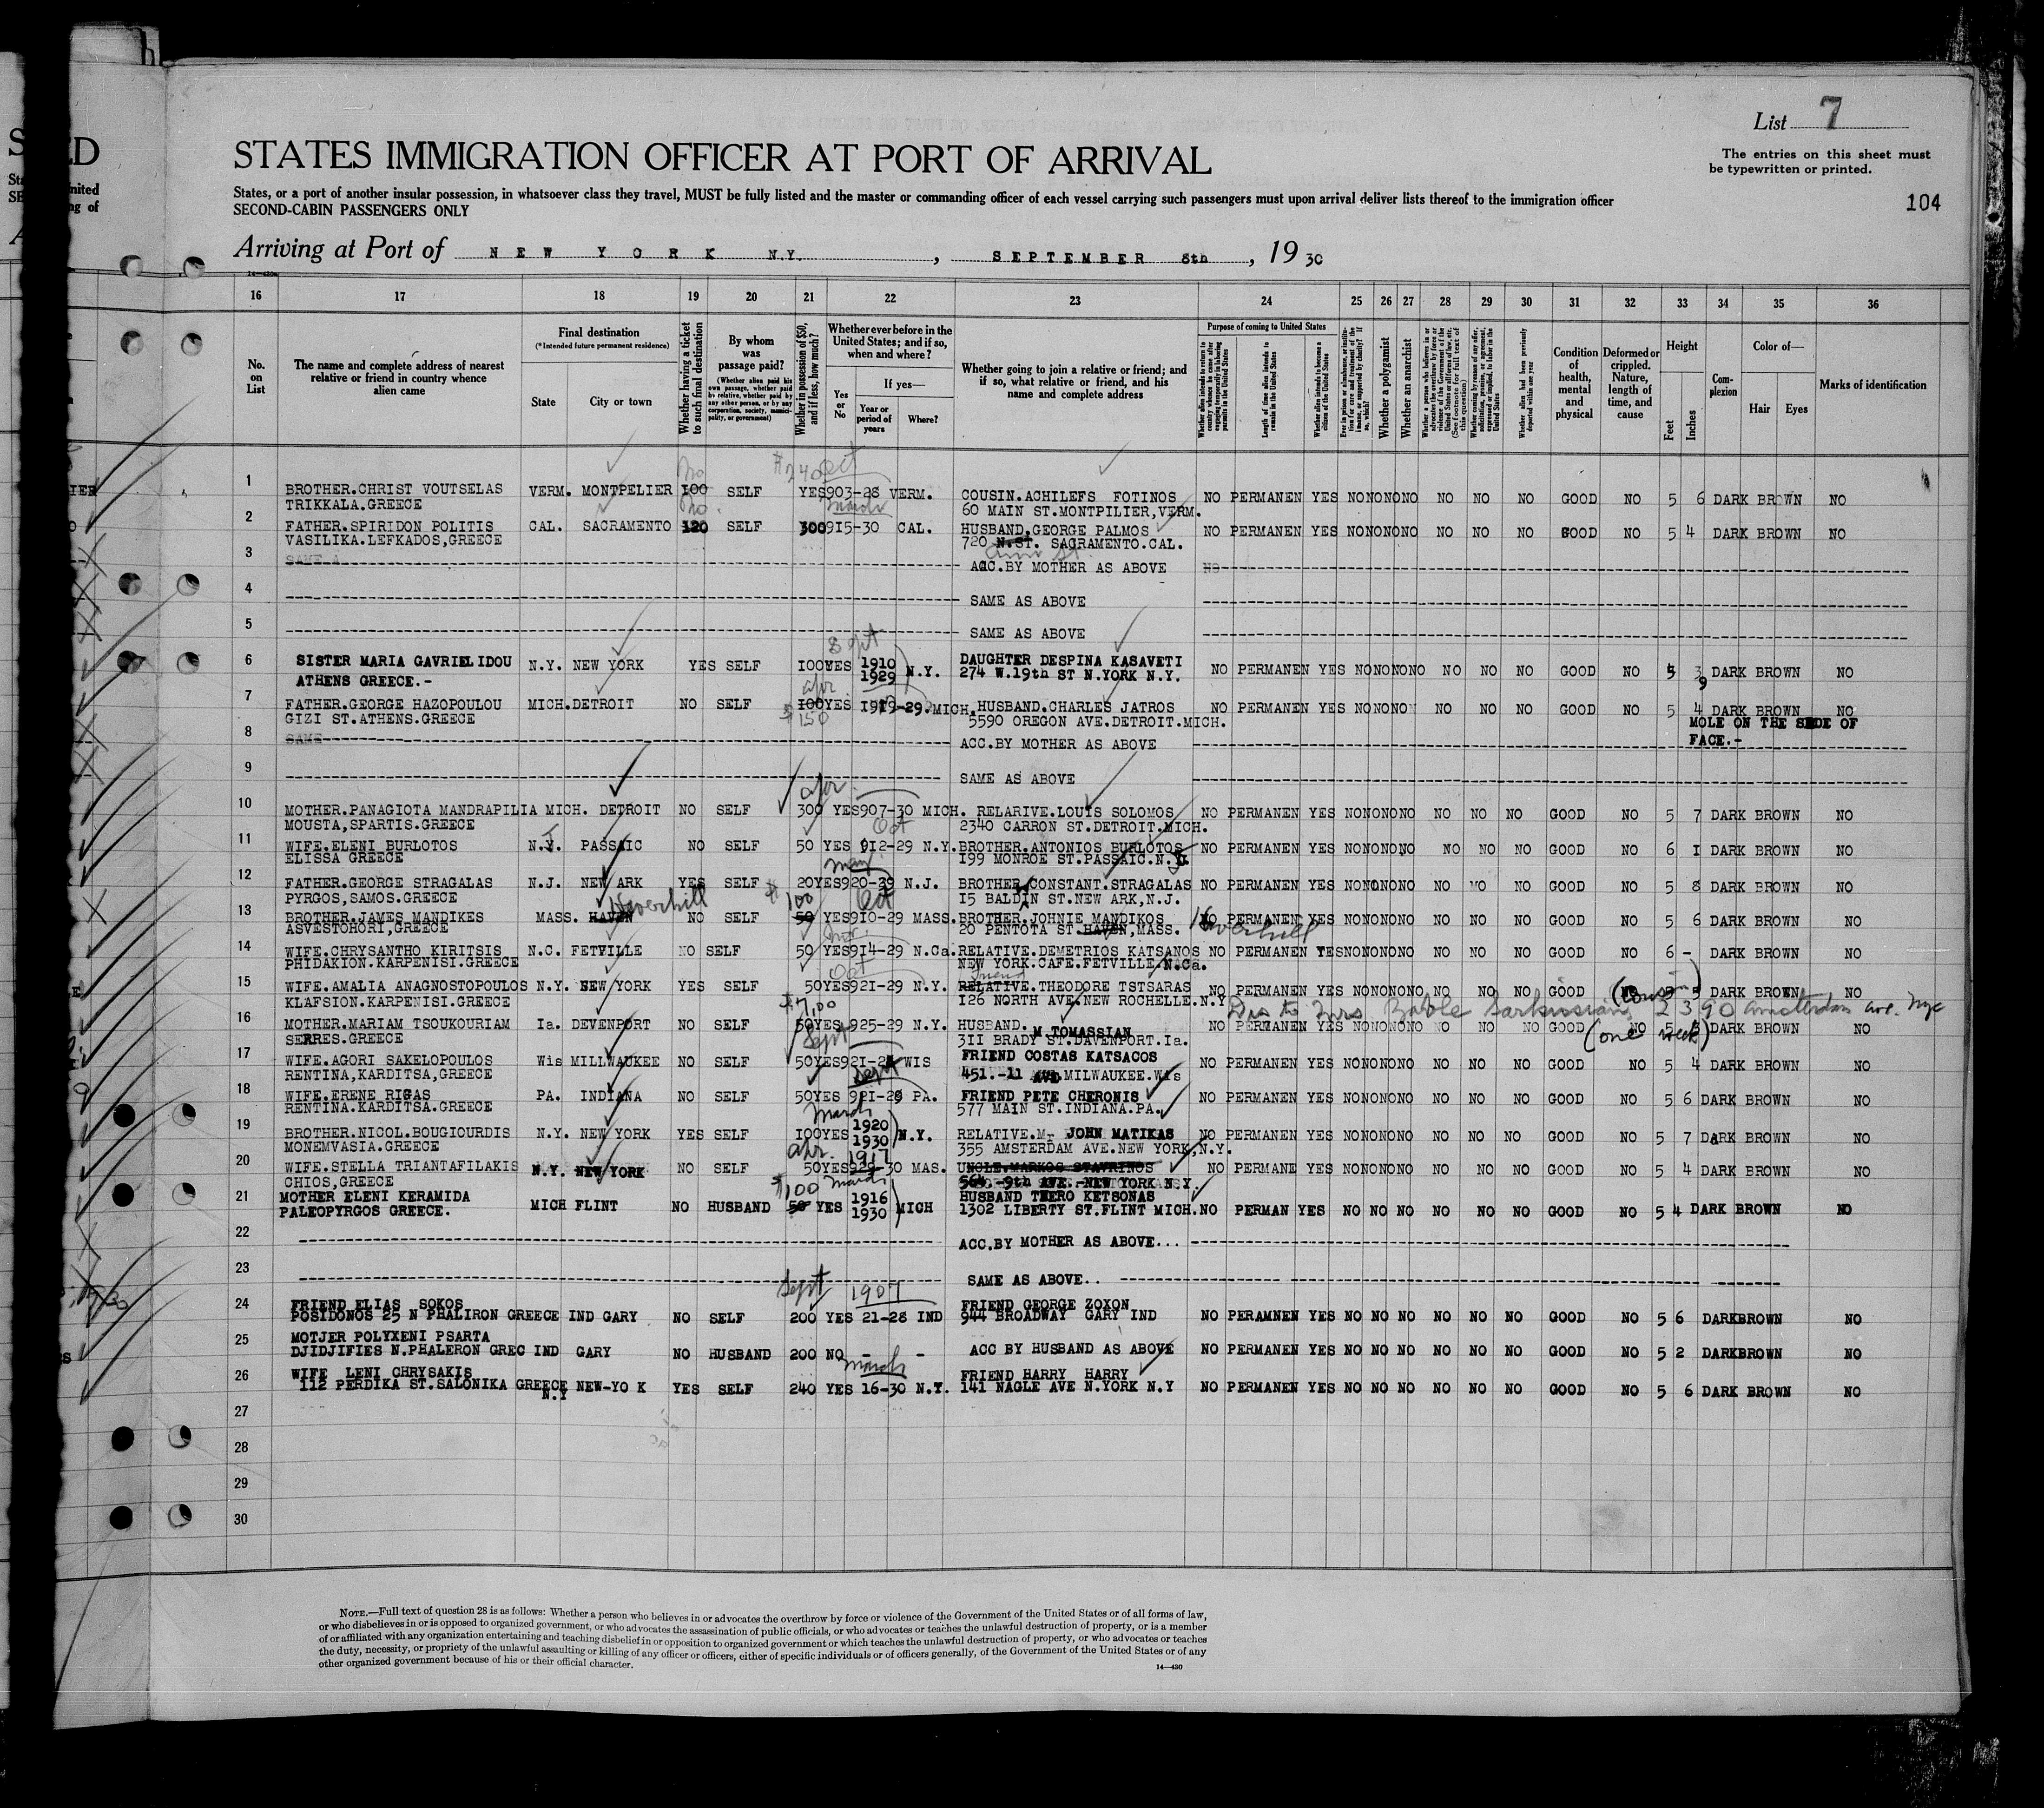 List 7
The entries on this sheet must
be typewritten or printed.
104
STATES IMMIGRATION OFFICER AT PORT OF ARRIVAL
States, or a port of another insular possession, in whatsoever class they travel, MUST be fully listed and the master or commanding officer of each vessel carrying such passengers must upon arrival deliver lists thereof to the immigration officer
SECOND-CABIN PASSENGERS ONLY
Arriving at Port of NEW YORK N.Y. , SEPTEMBER 8th , 19 30
16 17 18 19 20 21 22 23 24 25 26 27 28 29 30 31 32 33 34 35 36
No. on List
The name and complete address of nearest relative or friend in country whence alien came
Final destination
(*Intended future permanent residence)
State City or town
Whether having a ticket to such final destination
By whom was passage paid?
(Whether alien paid his own passage, whether paid by relative, whether paid by any other person, or by any corporation, society, municipality, or government)
Whether in possession of $50, and if less, how much?
Whether ever before in the United States; and if so, when and where?
Yes or No
If yes—
Year or period of years
Where?
Whether going to join a relative or friend; and if so, what relative or friend, and his name and complete address
Purpose of coming to United States
Length of time alien intends to remain in the United States
Whether alien intends to become a citizen of the United States
Whether a polygamist
Whether an anarchist
Whether alien had been previously deported within one year
Condition of health, mental and physical
Deformed or crippled. Nature, length of time, and cause
Height
Feet Inches
Complexion
Color of—
Hair Eyes
Marks of identification
1 BROTHER.CHRIST VOUTSELAS VERM. MONTPELIER 100 No SELF $240 YES 903-28 Oct VERM. COUSIN.ACHILEFS FOTINOS NO PERMANEN YES NO NO NO NO NO NO NO GOOD NO 5 6 DARK BROWN NO
TRIKKALA.GREECE 60 MAIN ST.MONTPILIER,VERM.
2 FATHER.SPIRIDON POLITIS CAL. SACRAMENTO 120 No SELF 300 915-30 March CAL. HUSBAND.GEORGE PALMOS NO PERMANEN YES NO NO NO NO NO NO NO GOOD NO 5 4 DARK BROWN NO
VASILIKA.LEFKADOS,GREECE 720 N.ST. SACRAMENTO.CAL.
3 SAME A ACC.BY MOTHER AS ABOVE
4 SAME AS ABOVE
5 SAME AS ABOVE
6 SISTER MARIA GAVRIELIDOU N.Y. NEW YORK YES SELF 100 YES Sept 1910 1929 N.Y. DAUGHTER DESPINA KASAVETI NO PERMANEN YES NO NO NO NO NO NO NO GOOD NO 5 3 DARK BROWN NO
ATHENS GREECE.- 274 W.19th ST N.YORK N.Y.
7 FATHER.GEORGE HAZOPOULOU MICH.DETROIT NO SELF 100 $150 YES apr 1919-29.MICH. HUSBAND.CHARLES JATROS NO PERMANEN YES NO NO NO NO NO NO GOOD NO 5 4 DARK BROWN NO
GIZI ST.ATHENS.GREECE 5590 OREGON AVE.DETROIT.MICH. MOLE ON THE SIDE OF
8 SAME ACC.BY MOTHER AS ABOVE FACE.-
9 SAME AS ABOVE
10 MOTHER.PANAGIOTA MANDRAPILIA MICH. DETROIT NO SELF 300 YES 907-30 apr MICH. RELARIVE.LOUIS SOLOMOS NO PERMANEN YES NO NO NO NO NO NO NO GOOD NO 5 7 DARK BROWN NO
MOUSTA,SPARTIS.GREECE 2340 CARRON ST.DETROIT.MICH.
11 WIFE.ELENI BURLOTOS N.J. PASSAIC NO SELF 50 YES 912-29 Oct N.Y. BROTHER.ANTONIOS BURLOTOS NO PERMANEN YES NO NO NO NO NO NO NO GOOD NO 6 1 DARK BROWN NO
ELISSA GREECE 199 MONROE ST.PASSAIC.N.J.
12 FATHER.GEORGE STRAGALAS N.J. NEW ARK YES SELF 20 YES 920-29 N.J. BROTHER CONSTANT.STRAGALAS NO PERMANEN YES NO NO NO NO NO NO NO GOOD NO 5 8 DARK BROWN NO
PYRGOS,SAMOS.GREECE 15 BALDIN ST.NEW ARK,N.J.
13 BROTHER.JAMES MANDIKES MASS. HAVEN Haverhill NO SELF 50 $100 YES 910-29 Oct MASS. BROTHER.JOHNIE MANDIKOS NO PERMANEN YES NO NO NO NO NO NO NO GOOD NO 5 6 DARK BROWN NO
ASVESTOHORI,GREECE 20 PENTOTA ST.HAVEN,MASS. Haverhill
14 WIFE.CHRYSANTHO KIRITSIS N.C. FETVILLE NO SELF 50 YES 914-29 N.Ca. RELATIVE.DEMETRIOS KATSANOS NO PERMANEN YES NO NO NO NO NO NO NO GOOD NO 6 - DARK BROWN NO
PHIDAKION.KARPENISI.GREECE NEW YORK.CAFE.FETVILLE.N.Ca.
15 WIFE.AMALIA ANAGNOSTOPOULOS N.Y. NEW YORK YES SELF 50 YES 921-29 Oct N.Y. RELATIVE friend.THEODORE TSTSARAS NO PERMANEN YES NO NO NO NO NO NO NO GOOD NO 5 5 DARK BROWN NO
KLAFSION.KARPENISI.GREECE 126 NORTH AVE.NEW ROCHELLE.N.Y
Dis to Mrs. Bable Sarkissian (cousin) 2390 Amsterdam ave. Nyc
16 MOTHER.MARIAM TSOUKOURIAM Ia. DEVENPORT NO SELF 50 $7.00 YES 925-29 N.Y. HUSBAND. M.TOMASSIAN NO PERMANEN YES NO NO NO NO NO NO NO GOOD NO 5 3 DARK BROWN NO
SERRES.GREECE 311 BRADY ST.DAVENPORT.Ia. (one week)
17 WIFE.AGORI SAKELOPOULOS Wis MILLWAUKEE NO SELF 50 YES Sept WIS FRIEND COSTAS KATSACOS NO PERMANEN YES NO NO NO NO NO NO NO GOOD NO 5 4 DARK BROWN NO
RENTINA,KARDITSA,GREECE 451.-11 AVE MILWAUKEE.Wis
18 WIFE.ERENE RIGAS PA. INDIANA NO SELF 50 YES 921-28 Sept PA. FRIEND PETE CHERONIS NO PERMANEN YES NO NO NO NO NO NO NO GOOD NO 5 6 DARK BROWN NO
RENTINA.KARDITSA.GREECE 577 MAIN ST.INDIANA.PA.
19 BROTHER.NICOL.BOUGIOURDIS N.Y. NEW YORK YES SELF 100 YES March 1920 1930 N.Y. RELATIVE.Mr JOHN MATIKAS NO PERMANEN YES NO NO NO NO NO NO NO GOOD NO 5 7 DARK BROWN NO
MONEMVASIA.GREECE 355 AMSTERDAM AVE.NEW YORK,N.Y.
20 WIFE.STELLA TRIANTAFILAKIS N.Y. NEW YORK NO SELF 50 YES apr. 1917 929-30 MAS. UNCLE.MARKOS STAVRINOS NO PERMANE YES NO NO NO NO NO NO NO GOOD NO 5 4 DARK BROWN NO
CHIOS,GREECE 564 -9th AVE.-NEW YORK N.Y.
21 MOTHER ELENI KERAMIDA MICH FLINT NO HUSBAND 50 $100 YES March 1916 1930 MICH HUSBAND THERO KETSONAS
PALEOPYRGOS GREECE. 1302 LIBERTY ST.FLINT MICH. NO PERMAN YES NO NO NO NO NO NO GOOD NO 5 4 DARK BROWN NO
22 ACC.BY MOTHER AS ABOVE...
23 SAME AS ABOVE..
24 FRIEND ELIAS SOKOS FRIEND GEORGE ZOXON
POSIDONOS 25 N PHALIRON GREECE IND GARY NO SELF 200 YES Sept 1907 21-28 IND 944 BROADWAY GARY IND NO PERAMNEN YES NO NO NO NO NO NO GOOD NO 5 6 DARKBROWN NO
25 MOTJER POLYXENI PSARTA
DJIDJIFIES N.PHALERON GREC IND GARY NO HUSBAND 200 NO - - ACC BY HUSBAND AS ABOVE NO PERMANEN YES NO NO NO NO NO NO GOOD NO 5 2 DARKBROWN NO
26 WIFE LENI CHRYSAKIS FRIEND HARRY HARRY
112 PERDIKA ST.SALONIKA GREECE N.Y NEW-YO K YES SELF 240 YES March 16-30 N.Y. 141 NAGLE AVE N.YORK N.Y NO PERMANEN YES NO NO NO NO NO NO GOOD NO 5 6 DARK BROWN NO
27
28
29
30
NOTE.—Full text of question 28 is as follows: Whether a person who believes in or advocates the overthrow by force or violence of the Government of the United States or of all forms of law,
or who disbelieves in or is opposed to organized government, or who advocates the assassination of public officials, or who advocates or teaches the unlawful destruction of property, or is a member
of or affiliated with any organization entertaining and teaching disbelief in or opposition to organized government or which teaches the unlawful destruction of property, or who advocates or teaches
the duty, necessity, or propriety of the unlawful assaulting or killing of any officer or officers, either of specific individuals or of officers generally, of the Government of the United States or of any
other organized government because of his or their official character.
14—430